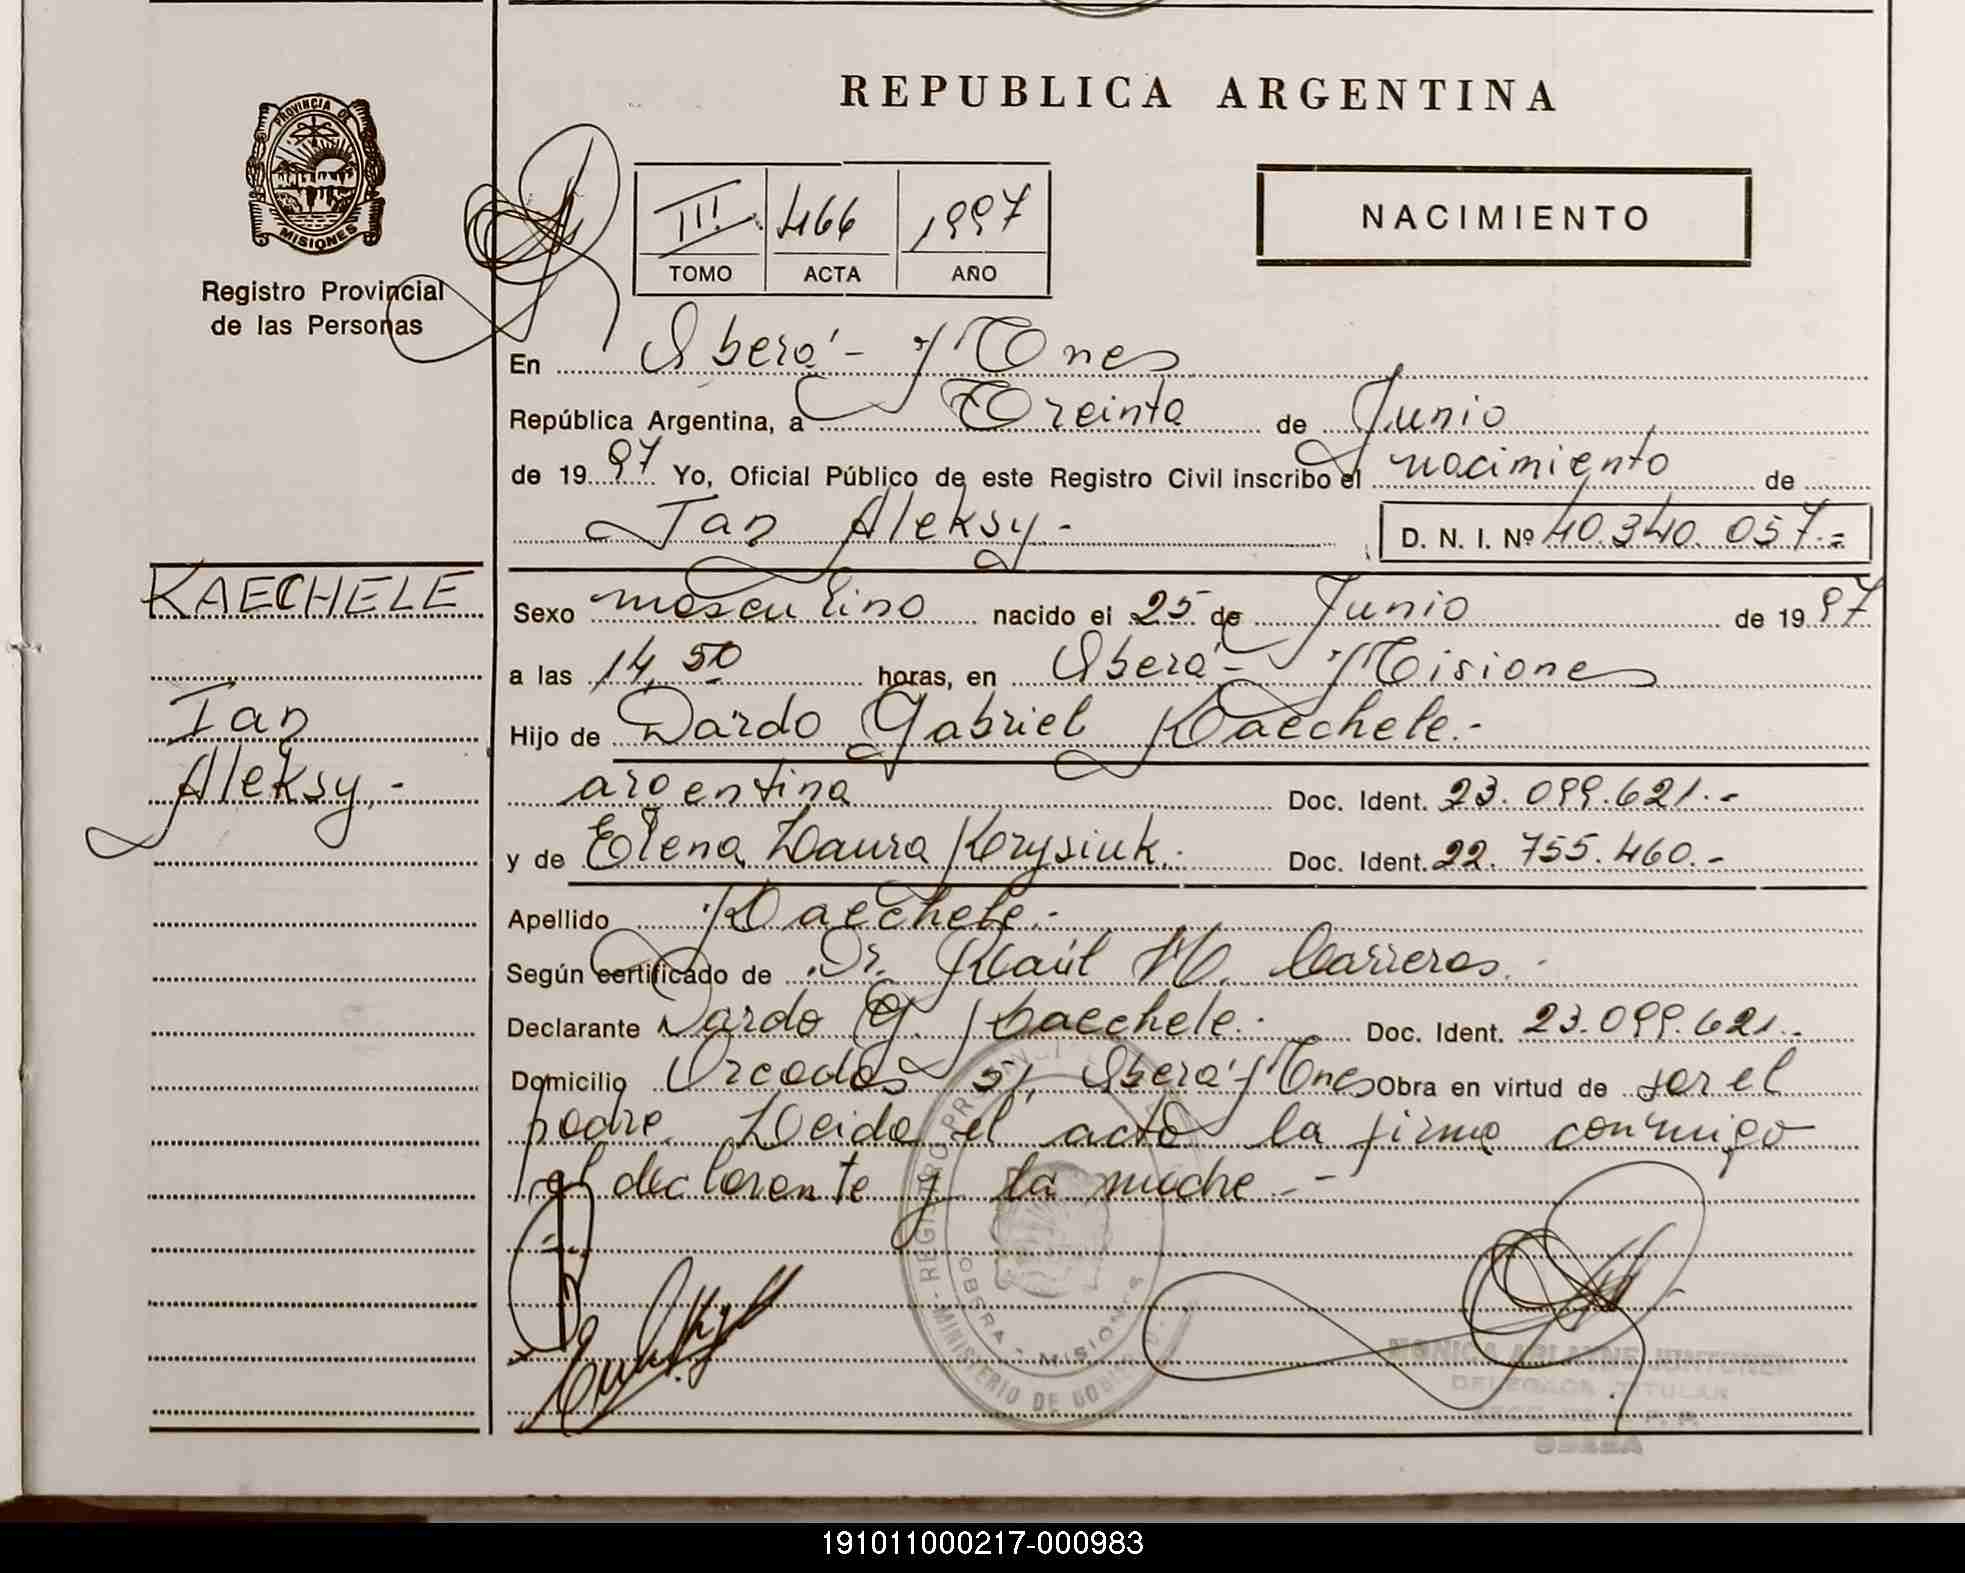 REPUBLICA ARGENTINA
PROVINCIA DE
MISIONES
Registro Provincial
de las Personas
III 466 1997
TOMO ACTA AÑO
NACIMIENTO
En Oberá - Mnes
República Argentina, a Treinta de Junio
de 1997 Yo, Oficial Público de este Registro Civil inscribo el nacimiento de
Ian Aleksy.- D. N. I. Nº 40.340.057.-
KAECHELE
Sexo masculino nacido el 25 de Junio de 1997
a las 14,50 horas, en Oberá - Misiones
Ian
Hijo de Dardo Gabriel Kaechele.-
Aleksy.-
argentina Doc. Ident. 23.099.621.-
y de Elena Laura Krysiuk.- Doc. Ident. 22.755.460.-
Apellido Kaechele.-
Según certificado de Dr. Raúl M. Carreras.
Declarante Dardo G. Kaechele.- Doc. Ident. 23.099.621.-
Domicilio Oberá - Mnes Obra en virtud de ser el
padre. Leida el acta la firma conmigo
el declarante y la madre.-
REGISTRO PROVINCIAL
OBERA - MISIONES
MINISTERIO DE GOBIERNO
DELEGADA TITULAR
OBERA
191011000217-000983